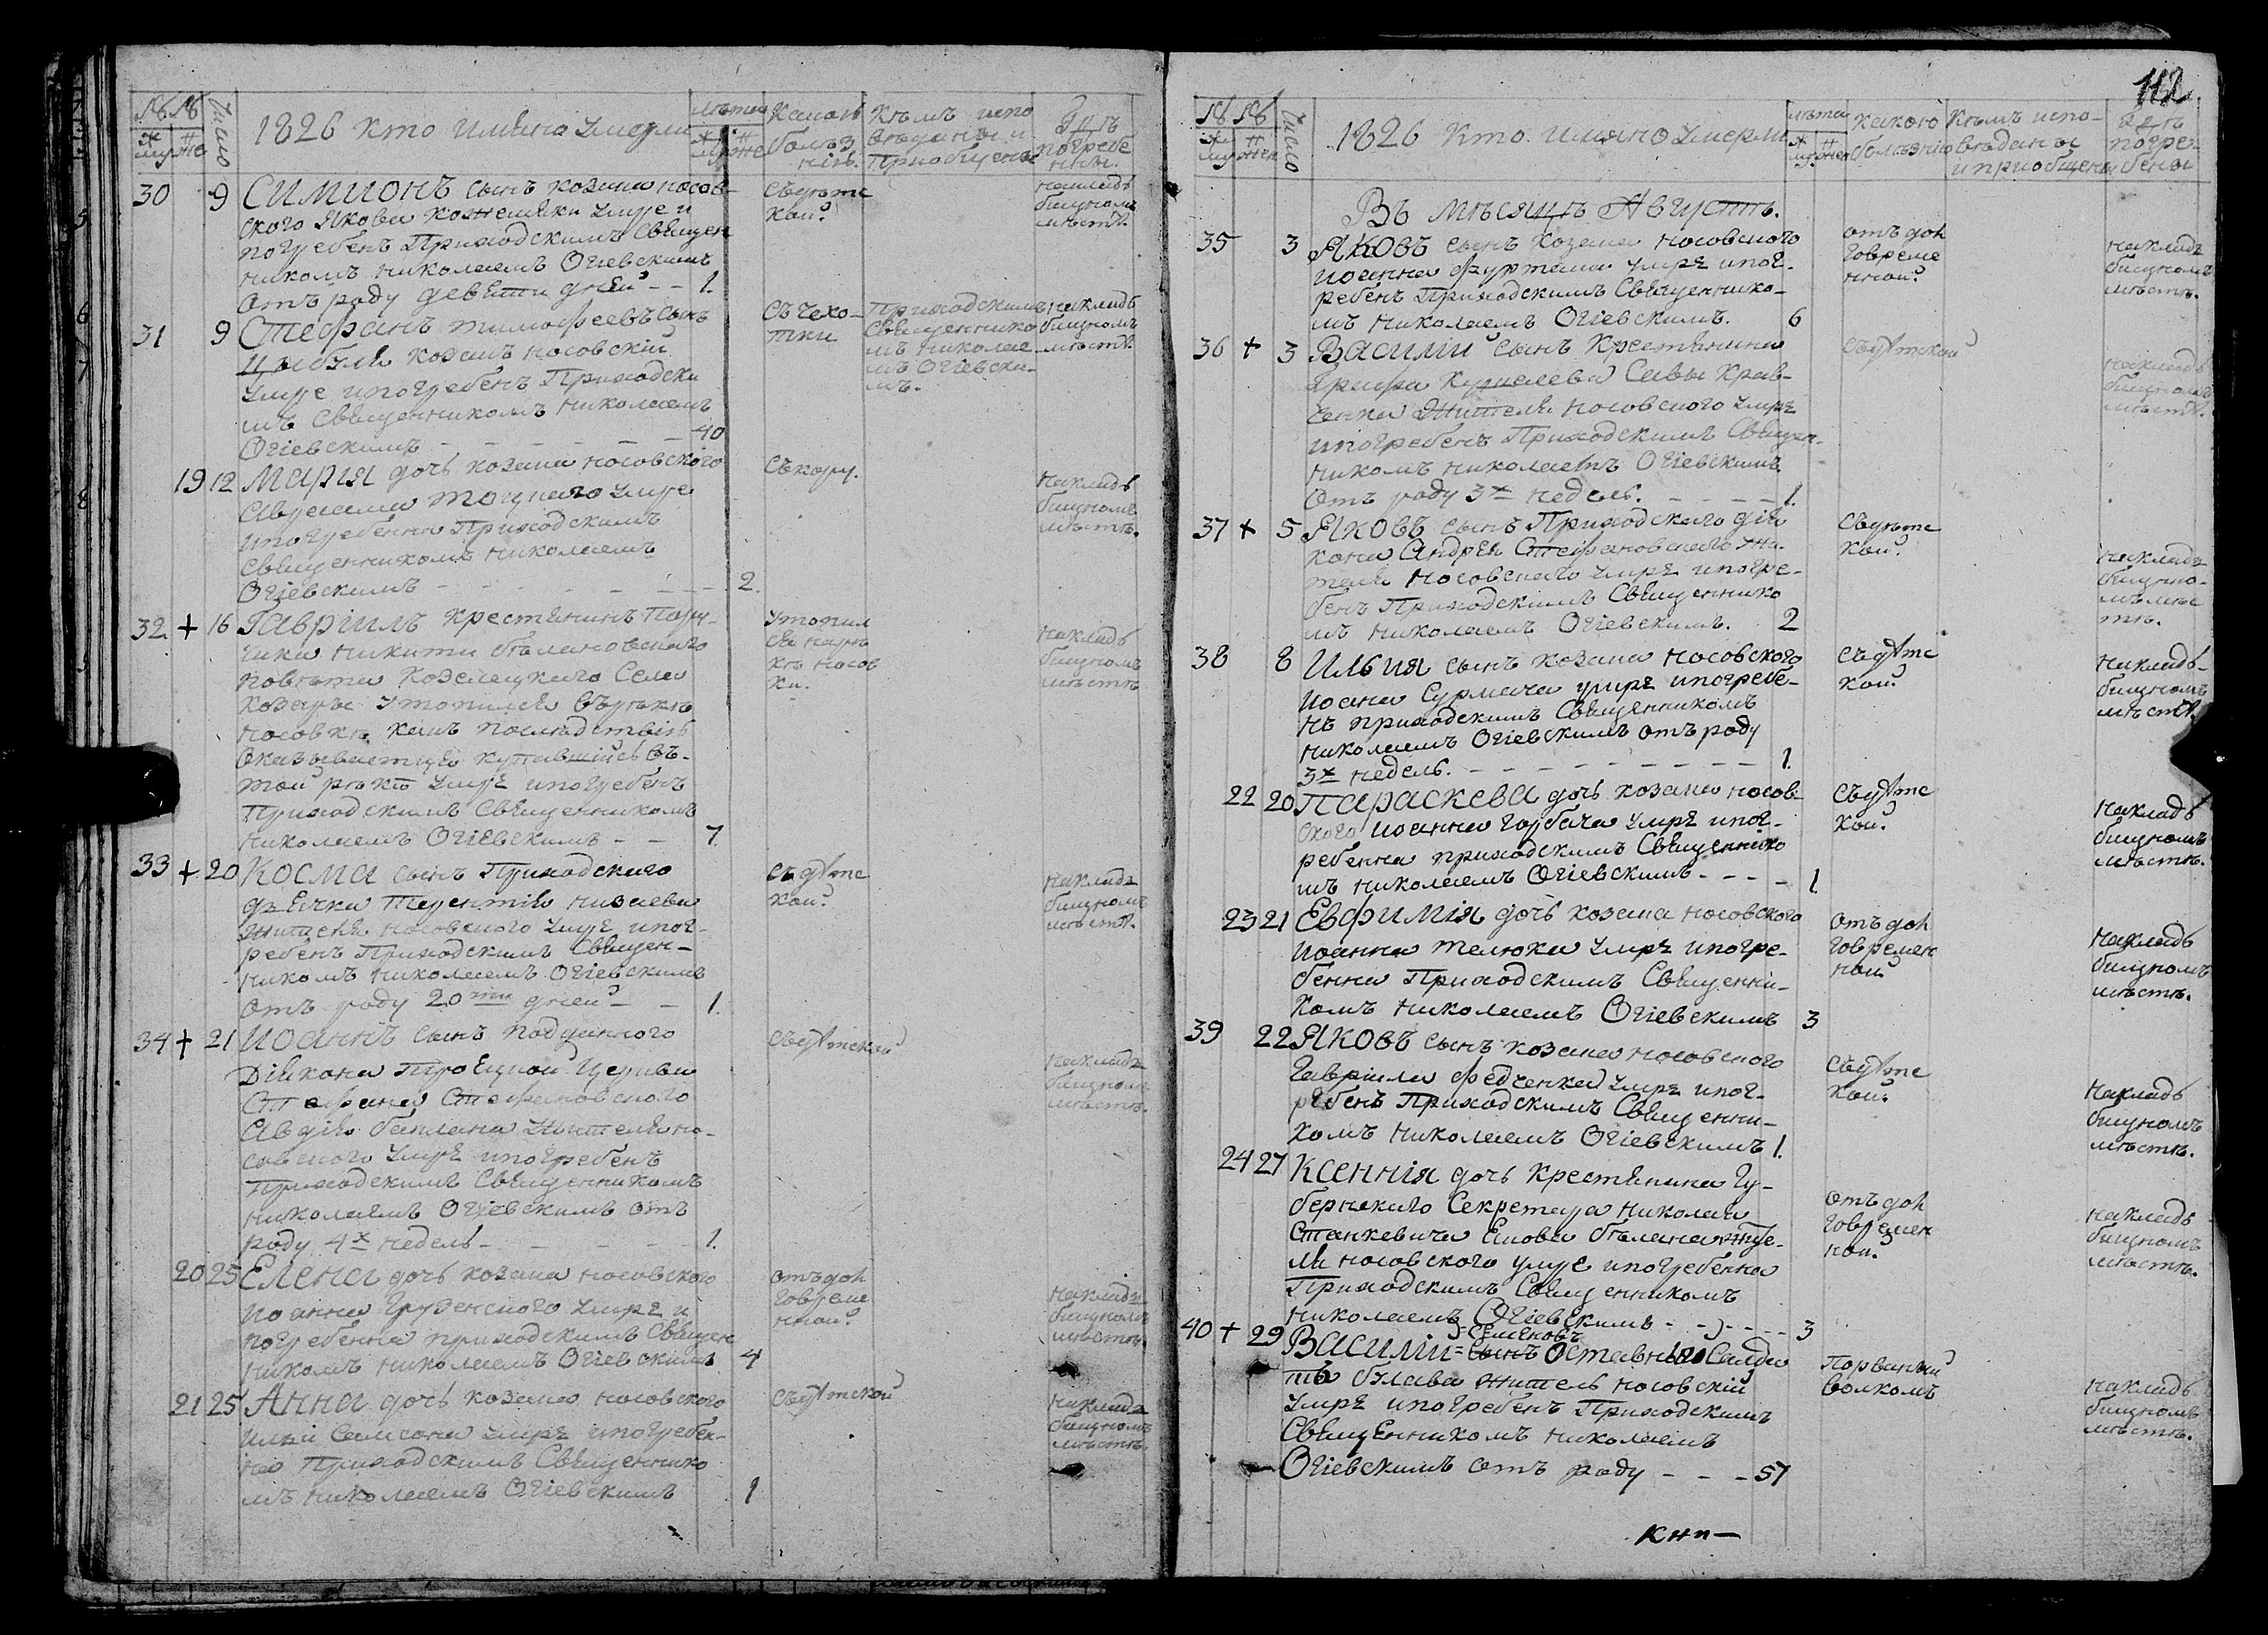 № № Число 1826 кто имяно умерли лѣта Какою болѣзнію кѣмъ исповѣданы и приобщены Гдѣ погребены
муж же муж же
30 9 Симионъ сынъ козака носов-
ского Якова Кожемяки умре и
погребенъ Приходскимъ Священ
никомъ Николаемъ Огіевскимъ
отъ роду девяти дней - - 1.
Съдѣтс
кой
накладъ
бищномъ
мѣстѣ.
31 9 Стефанъ Тимофеевъ сынъ
козакъ носовскій
умре и погребенъ Приходски
мъ Священникомъ Николаемъ
Огіевскимъ - - - - - - 40
Съчехо-
тки
Приходскимъ
Священнико
мъ Николае
мъ Огіевски-
мъ.
накладъ
бищномъ
мѣстѣ.
19 12 Мария дочь козака носовского
умре
и погребенна Приходскимъ
Священникомъ Николаемъ
Огіевскимъ - - - - - - 2.
Съкору.
накладъ
бищномъ
мѣстѣ.
32 + 16 Гавріилъ крестянинъ Пору-
чика Никити Белановского
повѣта Козелецкого Села
Козаръ утопился въ рѣкѣ
Носовкѣ какъ послѣдствіе
оказываетця купавшийсь въ-
той рѣкѣ умре и погребенъ
Приходскимъ Священникомъ
Николаемъ Огіевскимъ - - 7.
Утопил
ся нарѣ
кѣ носов
ки.
накладъ
бищномъ
мѣстѣ
33 + 20 Косма сынъ Приходского
дьячка Терентія Низаева
жителя носовского умре и пог-
ребенъ Приходскимъ Священ-
никомъ Николаемъ Огіевскимъ
отъ роду 20ти дней - - 1.
Съдѣтс
кой
накладъ
бищномъ
мѣстѣ.
34 + 21 Иоаннъ сынъ подданного
Діякона Троецкой Церкви
Стефана Стефановского
Авдія жителя но-
совского умре и погребенъ
Приходскимъ Священникомъ
Николаемъ Огіевскимъ отъ
роду 4х недель - - - - 1.
Съдѣтской
накладъ
бищномъ
мѣстѣ.
20 25 Елена дочь козака носовского
Иоанна Грузенского умре и
погребенна приходскимъ Священ
никомъ Николаемъ Огіевскимъ 4
отъ дол
говреме
нной
накладъ
бищномъ
мѣстѣ.
21 25 Анна дочь козака носовского
Ильи Самсона умре и погребен-
на Приходскимъ Священнико
мъ Николаемъ Огіевскимъ 1
Съдѣтской
накладъ
бищномъ
мѣстѣ.
112
№ № Число 1826 кто имяно умерли лѣта Какою болѣзнію Кѣмъ исповѣданы и приобщены Гдѣ погребены
муж жен муж жен
Въ мѣсяцѣ Августѣ.
35 3 Яковъ сынъ козака носовского
Иоанна умре и пог-
ребенъ Приходскимъ Священнико-
мъ Николаемъ Огіевскимъ. 6
отъ дол
говреме
нной
накладъ
бищномъ
мѣстѣ.
36 + 3 Василій сынъ Крестянина
Графа Кушелева Савы Крав-
ченка жителя носовского умре
и погребенъ Приходскимъ Священ-
никомъ Николаемъ Огіевскимъ
отъ роду 3х недель. - - - - 1.
Съдѣтской
накладъ
бищномъ
мѣстѣ.
37 + 5 Яковъ сынъ Приходского дія
кона Андрея Стефановского жи-
теля носовского умре и погре-
бенъ Приходскимъ Священнико
мъ Николаемъ Огіевскимъ. 2
Съдѣтс
кой
накладъ
бищно-
мъ мѣс
тѣ.
38 8 Илья сынъ козака носовского
Иоана Сурмача умре и погребе-
нъ приходскимъ Священникомъ
Николаемъ Огіевскимъ отъ роду
3х недель. - - - - - - - - 1.
Съдѣтс
кой
накладъ-
бищномъ
мѣстѣ.
22 20 Параскева дочь козака носов-
ского Иоанна Горбача умре и пог-
ребенна приходскимъ Священнико
мъ Николаемъ Огіевскимъ - - - - 1.
Съдѣтс
кой
накладъ
бищномъ
мѣстѣ.
23 21 Евфимія дочь козака носовского
Иоанна Телюка умре и погре-
бенна Приходскимъ Священни-
комъ Николаемъ Огіевскимъ 3
отъ дол
говремен
ной
накладъ
бищномъ
мѣстѣ.
39 22 Яковъ сынъ козака носовского
Гавріила Федченка умре и пог-
ребенъ Приходскимъ Священни-
комъ Николаемъ Огіевскимъ 1.
Съдѣтс
кой
накладъ
бищномъ
мѣстѣ.
24 27 Ксеннія дочь крестянина Гу-
бернского Секретаря Николая
Станкевича жите-
ля носовского умре и погребенна
Приходскимъ Священникомъ
Николаемъ Огіевскимъ - - - - 3
отъ дол
говремен
ной
накладъ
бищномъ
мѣстѣ.
40 + 29 Василій Семеновъ сынъ Отставный Салда
тъ Булава житель носовскій
умре и погребенъ Приходскимъ
Священникомъ Николаемъ
Огіевскимъ отъ роду - - - 57
Порванный
волкомъ
накладъ
бищномъ
мѣстѣ.
кни-